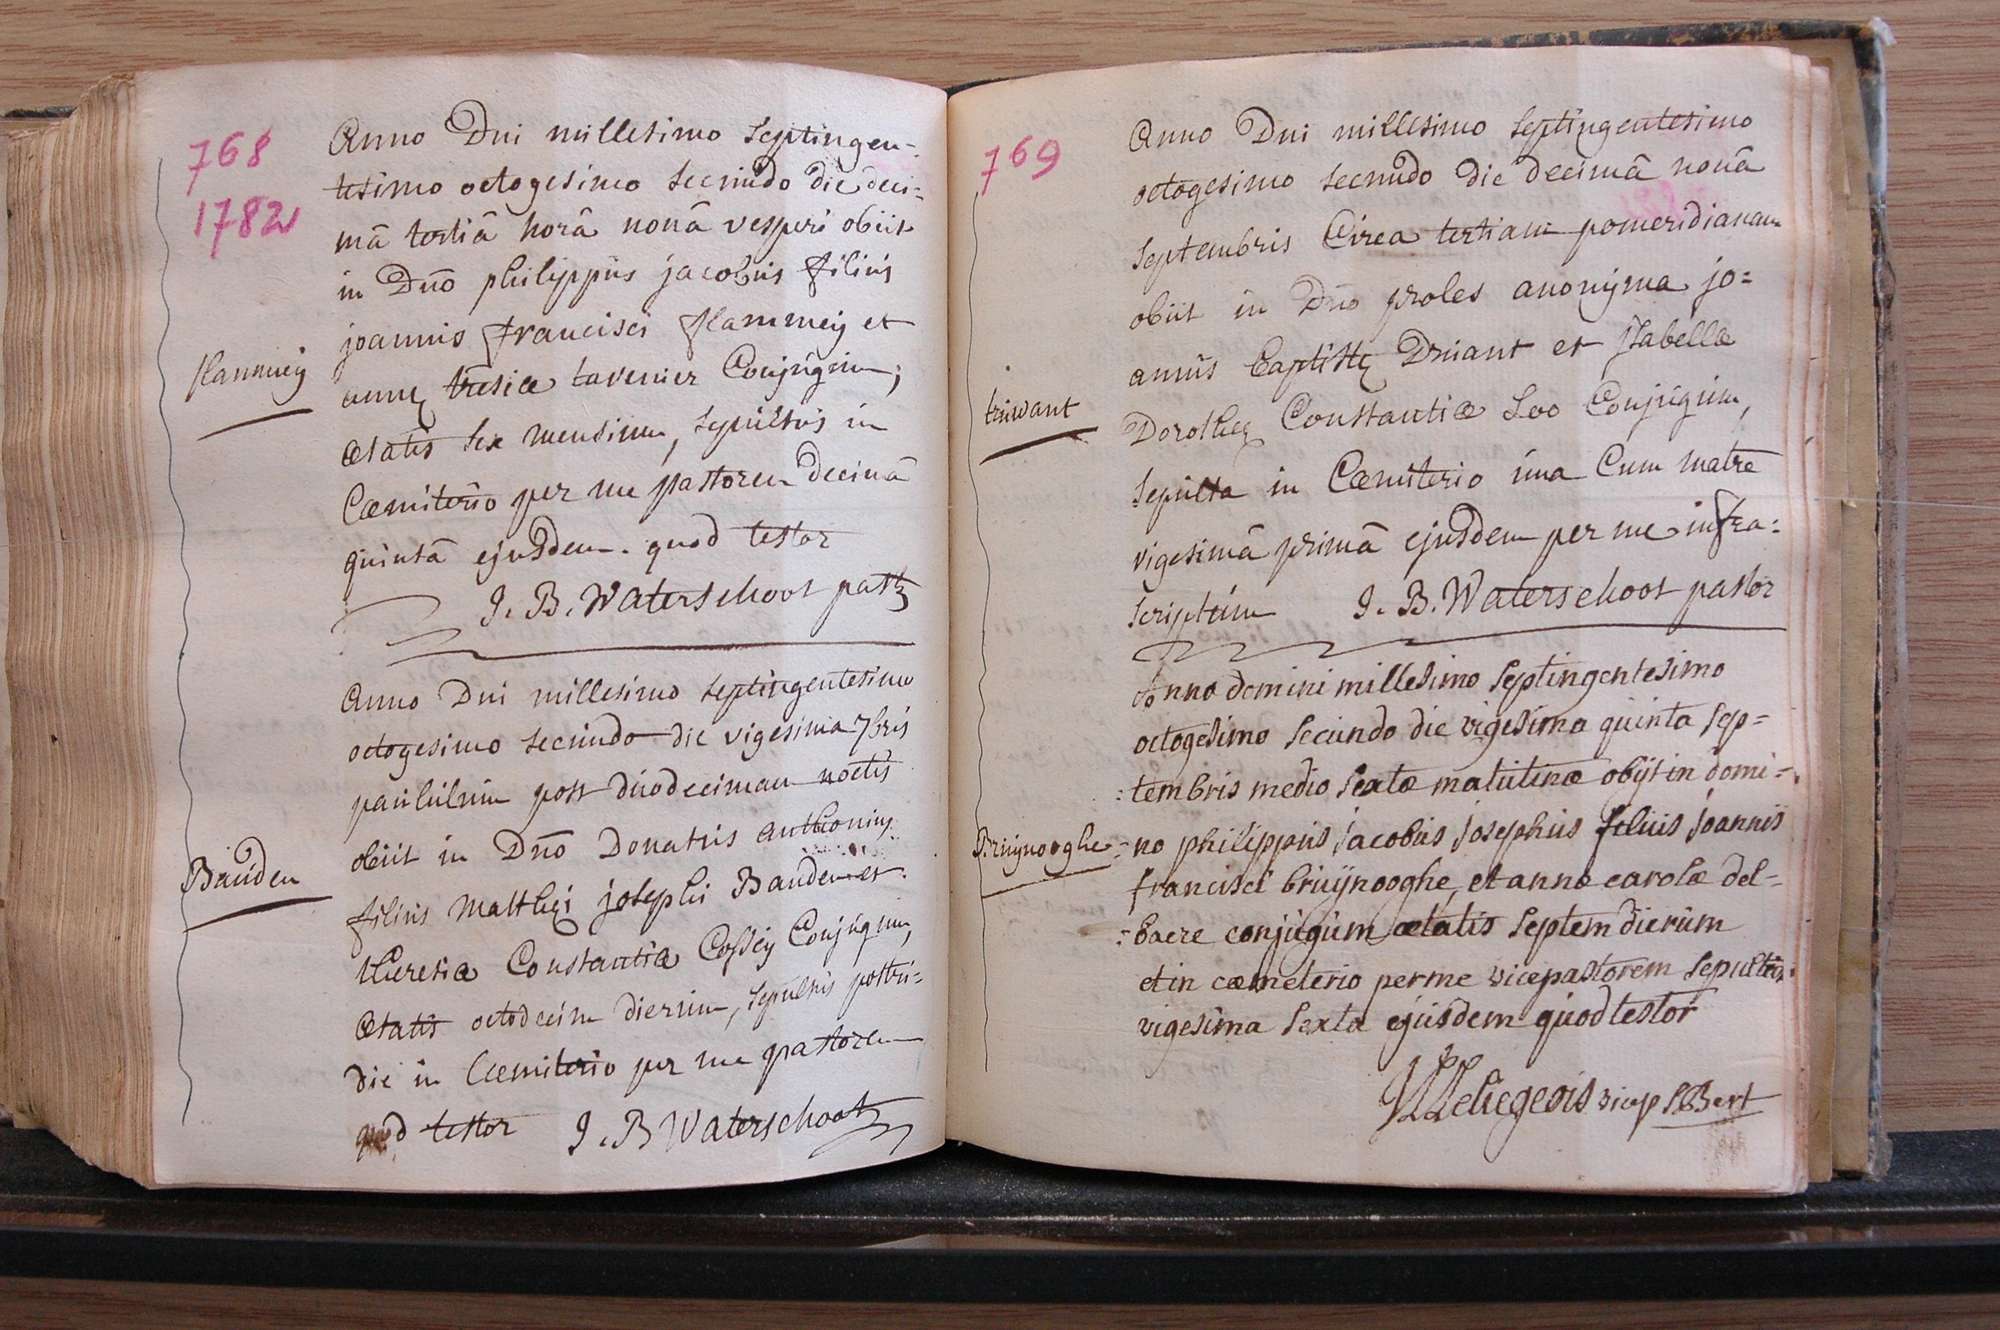 768
1782
Anno Dni millesimo septingen-
tesimo octogesimo secundo die deci-
mâ tertiâ horâ nonâ vesperi obiit
in Dno philippus jacobus filius
joannis francisci flammey et
annę tresiæ tavernier Conjugum;
ætatis sex mensium, sepultus in
Cœmiterio per me pastorem decimâ
quintâ ejusdem. quod testor
J. B. Waterschoot past
flammey
Anno Dni millesimo septingentesimo
octogesimo secundo die vigesima 7bris
paululum post duodecimam noctis
obiit in Dno Donatus anthonius
filius Matthęi josephi Bauden et
theresiæ Constantiæ Cossey Conjugum,
ætatis octodecim dierum, sepultus postri-
die in Cœmiterio per me pastorem
quod testor J. B Waterschoot
Bauden
769
Anno Dni millesimo septingentesimo
octogesimo secundo die decimâ nonâ
septembris Circa tertiam pomeridianam
obiit in Dno proles anonyma jo=
annis baptistę Druant et jsabellæ
Dorotheę Constantiæ Loo Conjugum,
sepulta in Cœmiterio una Cum matre
vigesimâ primâ ejusdem per me infra=
scriptum J. B. Waterschoot pastor
truwant
Anno domini millesimo septingentesimo
octogesimo secundo die vigesima quinta sep=
=tembris medio sextæ matutinæ obijt in domi=
=no philippus jacobus josephus filius joannis
francisci bruijnooghe, et annæ carolæ del=
=baere conjugum ætatis septem dierum
et in cœmeterio per me vicepastorem sepultus
vigesima sexta ejusdem quod testor
Leliegeois vicep SBert
Bruijnooghe